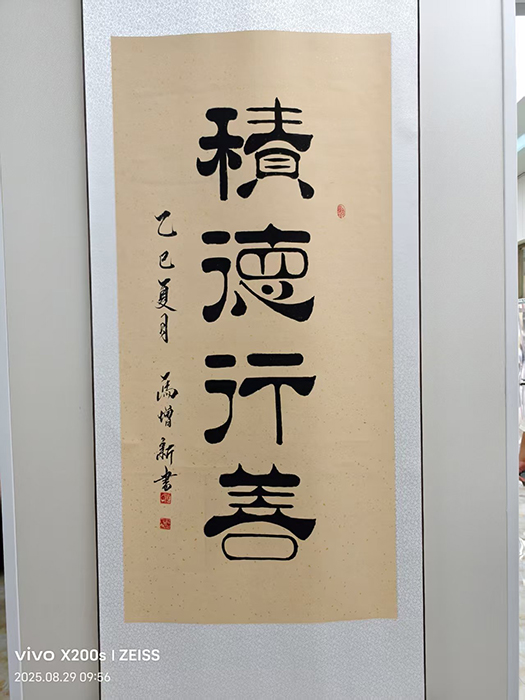 積德行善
乙巳夏月 馬增新書
vivo X200s | ZEISS
2025.08.29 09:56